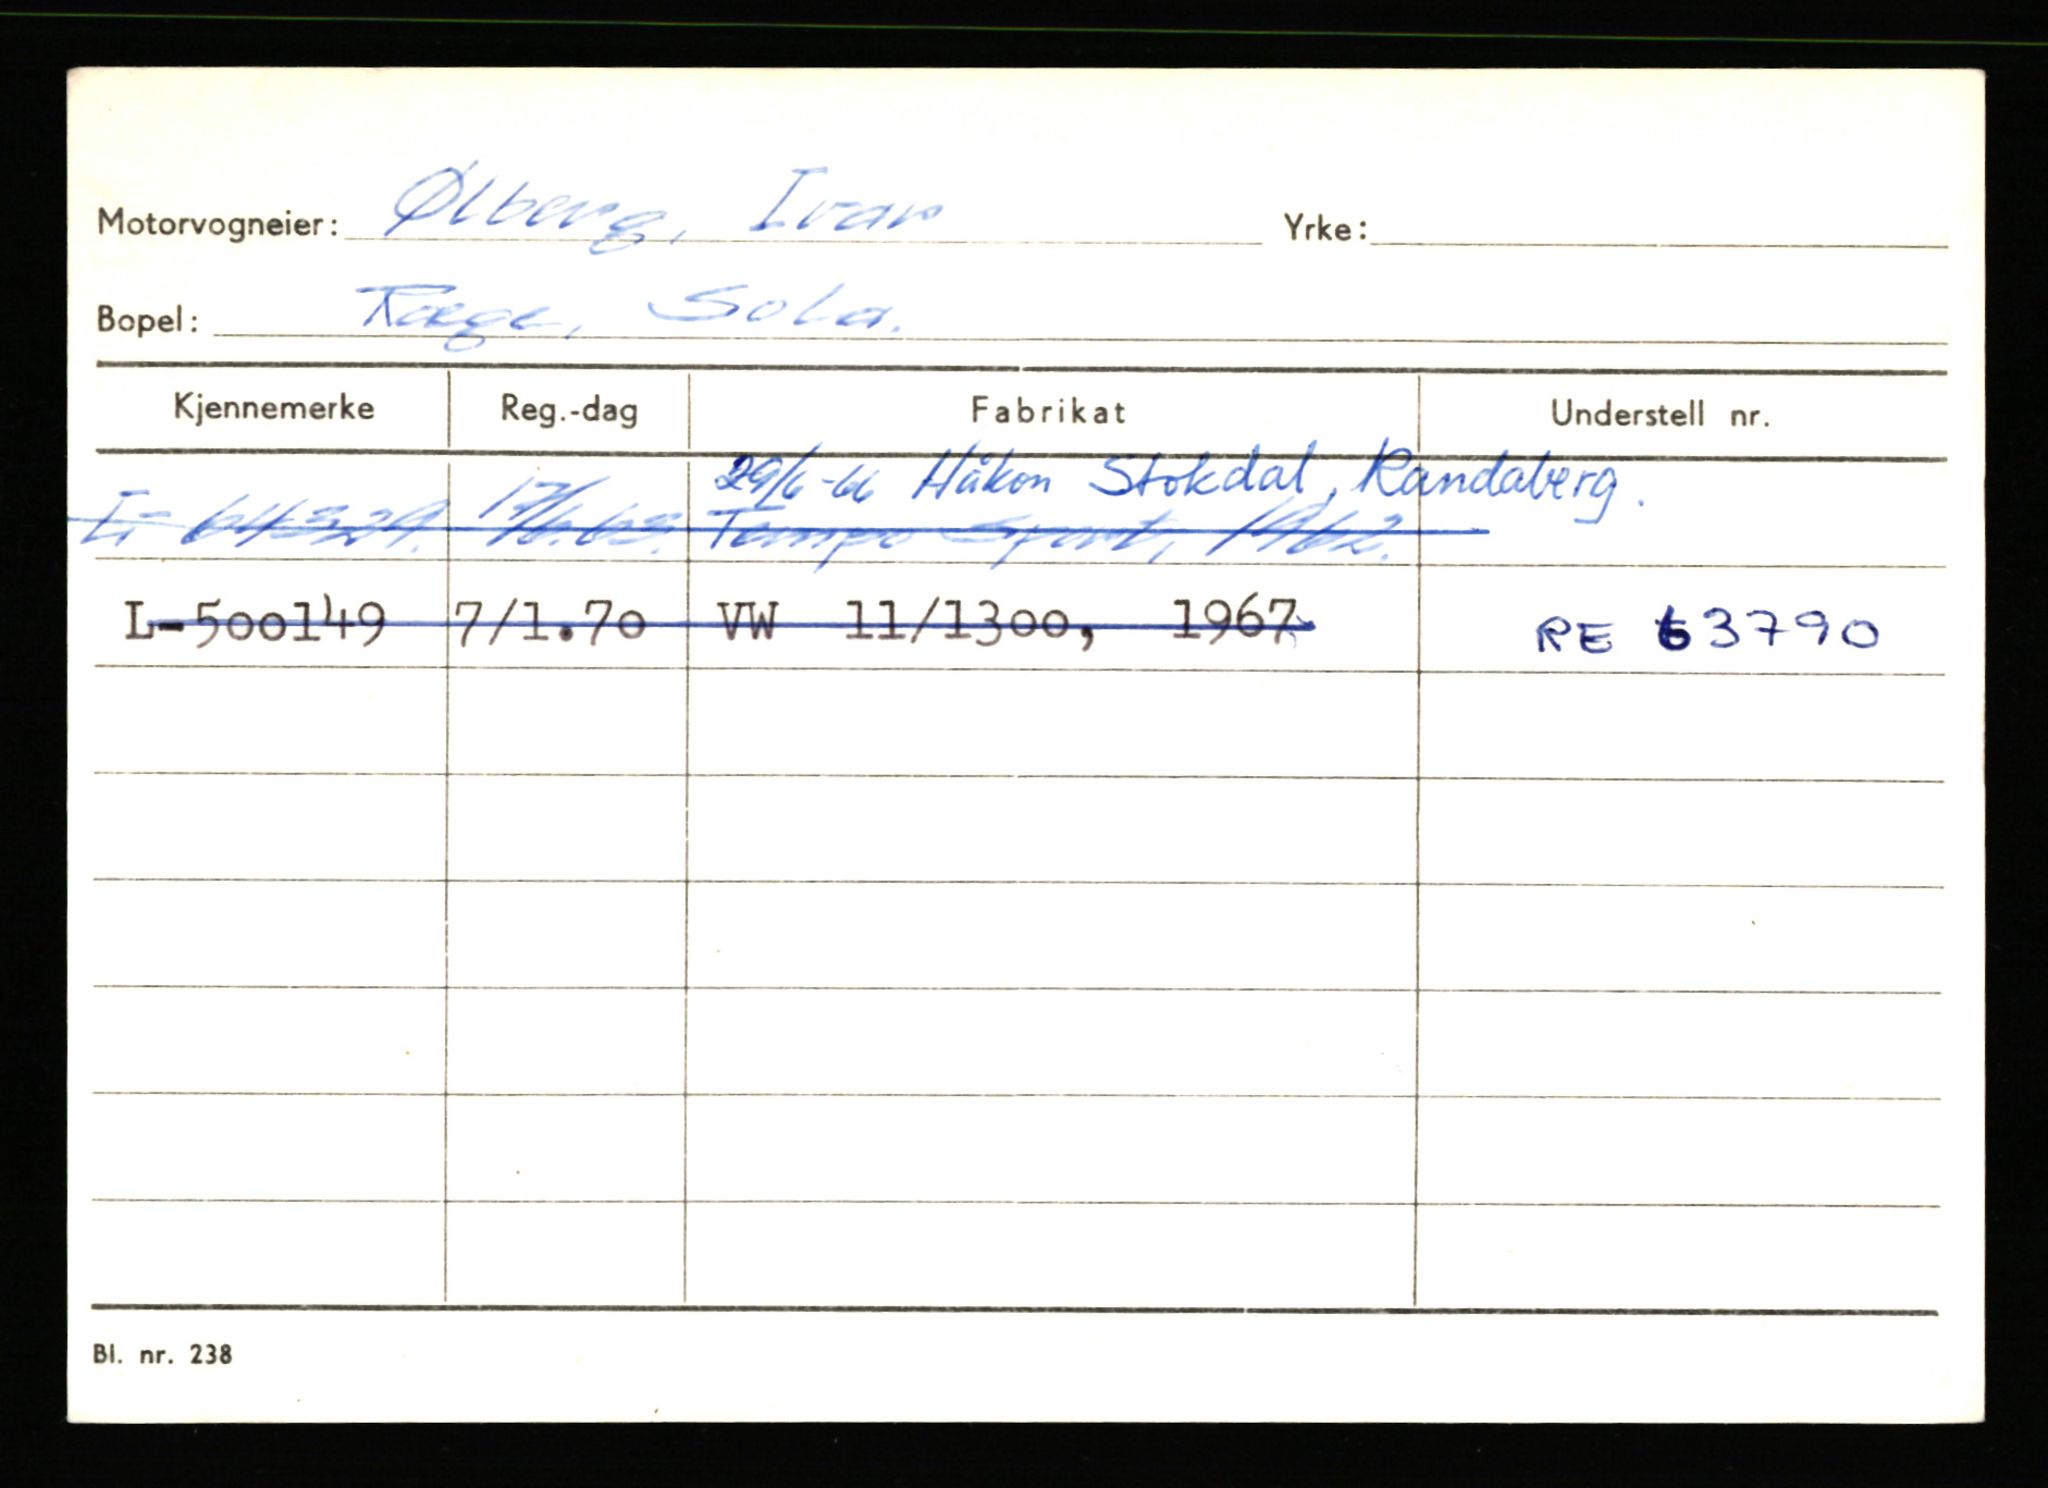 Motorvogneier: Ølberg, Ivar Yrke:
Bopel: Ræge, Sola.
Kjennemerke Reg.-dag Fabrikat Understell nr.
29/6-66 Håkon Stokdal, Randaberg.
L- 64329. 17/6.63. Tempo Sport, 1962.
L-500149 7/1.70 VW 11/1300, 1967 RE 63790
Bl. nr. 238